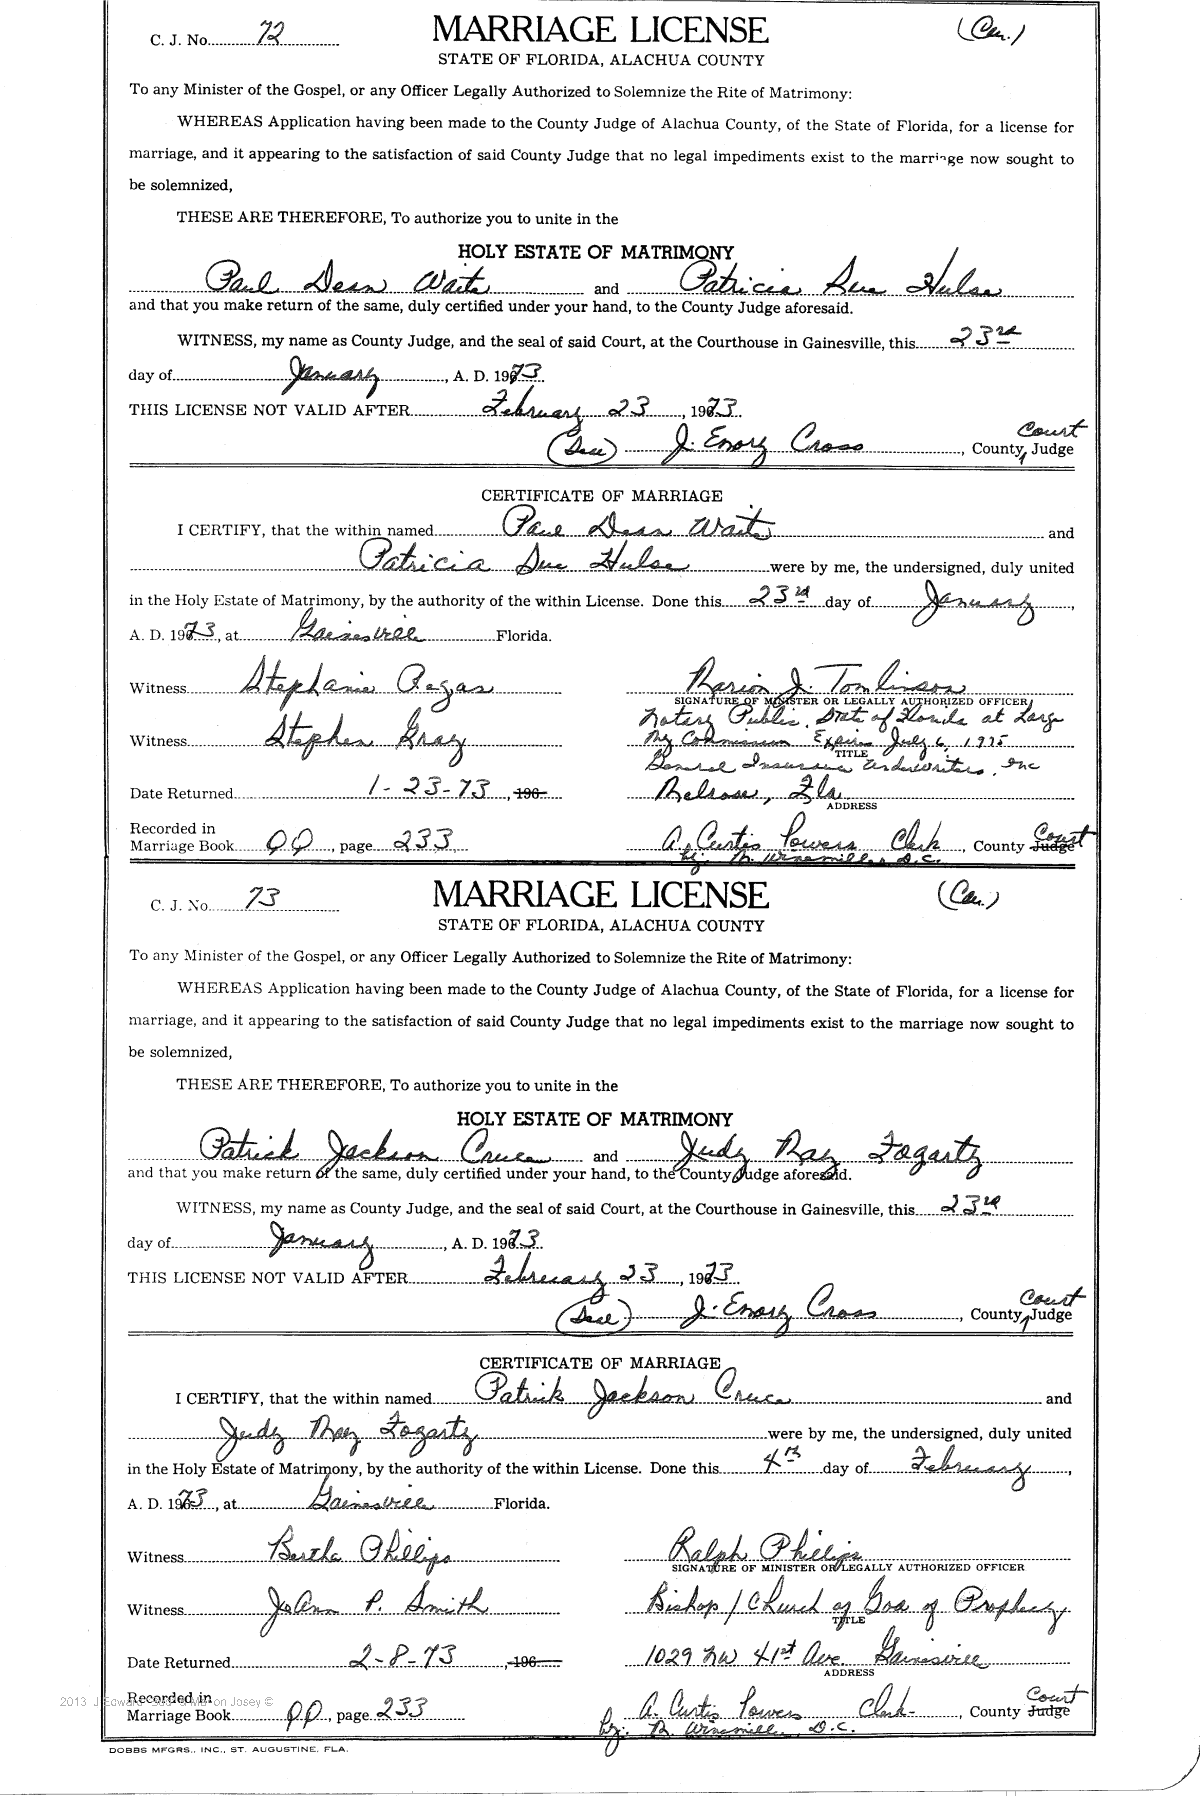 C. J. No. 72 MARRIAGE LICENSE (Cau.)
STATE OF FLORIDA, ALACHUA COUNTY
To any Minister of the Gospel, or any Officer Legally Authorized to Solemnize the Rite of Matrimony:
WHEREAS Application having been made to the County Judge of Alachua County, of the State of Florida, for a license for
marriage, and it appearing to the satisfaction of said County Judge that no legal impediments exist to the marriage now sought to
be solemnized,
THESE ARE THEREFORE, To authorize you to unite in the
HOLY ESTATE OF MATRIMONY
Paul Dean Waite and Patricia Sue Hulse
and that you make return of the same, duly certified under your hand, to the County Judge aforesaid.
WITNESS, my name as County Judge, and the seal of said Court, at the Courthouse in Gainesville, this 23rd
day of January, A. D. 1973
THIS LICENSE NOT VALID AFTER February 23, 1973
Court
(Seal) J. Emory Cross, County Judge
CERTIFICATE OF MARRIAGE
I CERTIFY, that the within named Paul Dean Waite and
Patricia Sue Hulse were by me, the undersigned, duly united
in the Holy Estate of Matrimony, by the authority of the within License. Done this 23rd day of January,
A. D. 1973, at Gainesville Florida.
Witness Stephanie Regas Marion J. Tomlinson
SIGNATURE OF MINISTER OR LEGALLY AUTHORIZED OFFICER
Notary Public, State of Florida at Large
Witness Stephen Gray My Commission Expires July 6, 1975
TITLE
General Insurance Underwriters, Inc
Date Returned 1-23-73, 196 Melrose, Fla
ADDRESS
Recorded in Court
Marriage Book QQ, page 233 A. Curtis Powers Clerk, County Judge
by: M. Winsmiller D.C.
C. J. No. 73 MARRIAGE LICENSE (Cau.)
STATE OF FLORIDA, ALACHUA COUNTY
To any Minister of the Gospel, or any Officer Legally Authorized to Solemnize the Rite of Matrimony:
WHEREAS Application having been made to the County Judge of Alachua County, of the State of Florida, for a license for
marriage, and it appearing to the satisfaction of said County Judge that no legal impediments exist to the marriage now sought to
be solemnized,
THESE ARE THEREFORE, To authorize you to unite in the
HOLY ESTATE OF MATRIMONY
Patrick Jackson Cruce and Judy May Fogarty
and that you make return of the same, duly certified under your hand, to the County Judge aforesaid.
WITNESS, my name as County Judge, and the seal of said Court, at the Courthouse in Gainesville, this 23rd
day of January, A. D. 1973
THIS LICENSE NOT VALID AFTER February 23, 1973
Court
(Seal) J. Emory Cross, County Judge
CERTIFICATE OF MARRIAGE
I CERTIFY, that the within named Patrick Jackson Cruce and
Judy May Fogarty were by me, the undersigned, duly united
in the Holy Estate of Matrimony, by the authority of the within License. Done this 4th day of February,
A. D. 1973, at Gainesville Florida.
Witness Bertha Phillips Ralph Phillips
SIGNATURE OF MINISTER OR LEGALLY AUTHORIZED OFFICER
Witness JoAnn P. Smith Bishop / Church of God of Prophecy
TITLE
Date Returned 2-8-73, 196 1029 NW 41st Ave. Gainesville
ADDRESS
Recorded in Court
Marriage Book QQ, page 233 A. Curtis Powers Clerk, County Judge
by: M. Winsmiller, D.C.
DOBBS MFGRS., INC., ST. AUGUSTINE, FLA.